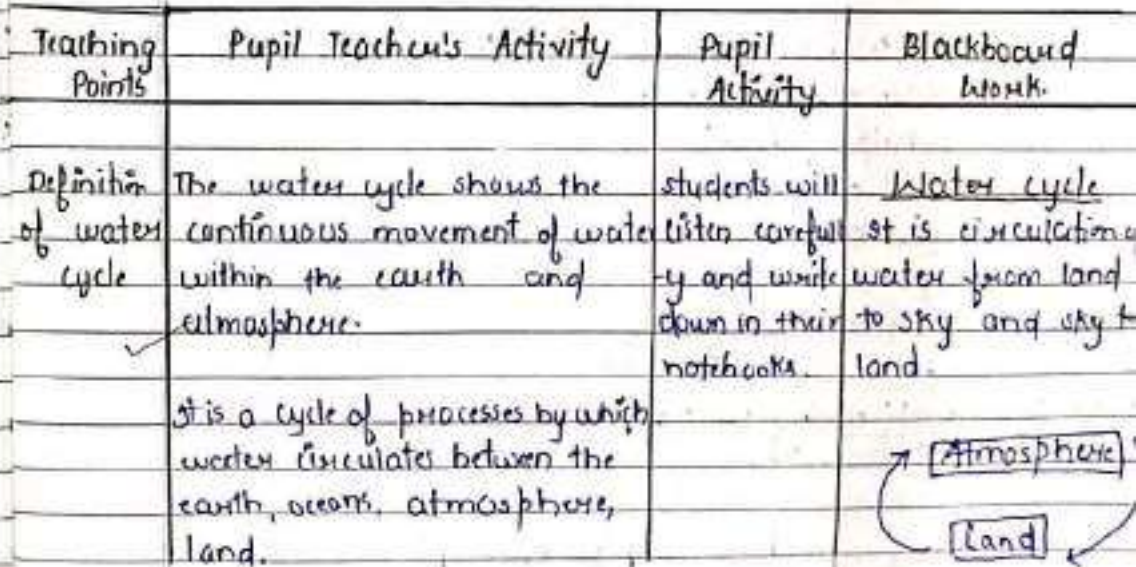 Teaching Points
Pupil Teacher's Activity
Pupil Activity
Blackboard Work.
Definition
of water
cycle
The water cycle shows the
continuous movement of water
within the earth and
atmosphere.
It is a cycle of processes by which
water circulates between the
earth, oceans, atmosphere,
land.
students will
listen carefull
-y and write
down in their
notebooks.
Water cycle
It is circulation o
water from land
to sky and sky t
land.
Atmosphere
Land